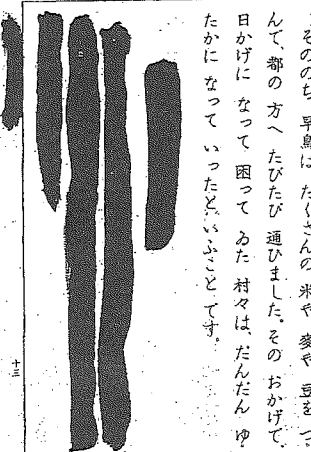 そののち、早鳥は たくさんの 米や 麥や 豆を つ
んで、都の 方へ たびたび 通ひました。その おかげで、
日かげに なって 困って ゐた 村々は、だんだん ゆ
たかに なって いったと いふこと です。
十三